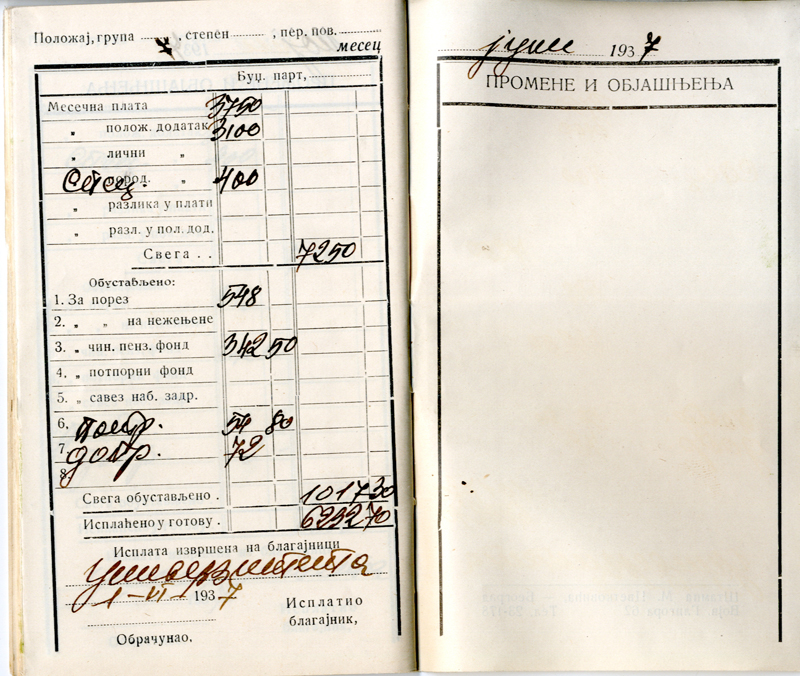 Положај, група 7, степен , пер. пов.
месец
Буџ. парт,
Месечна плата 3750
„ полож. додатак 3100
„ лични „
пород. „ 400
„ разлика у плати
„ разл. у пол. дод.
Свега . . 7250
Обустављено:
1. За порез 548
2. „ „ на нежењене
3. „ чин. пенз. фонд 342 50
4. „ потпорни фонд
5. „ савез наб. задр.
6. 54 80
7. допр. 72
8
Свега обустављено . 1017 30
Исплаћено у готову . 6232 70
Исплата извршена на благајници
Универзитета
1-VI- 1937
Исплатио
благајник,
Обрачунао,
јуни 1937
ПРОМЕНЕ И ОБЈАШЊЕЊА